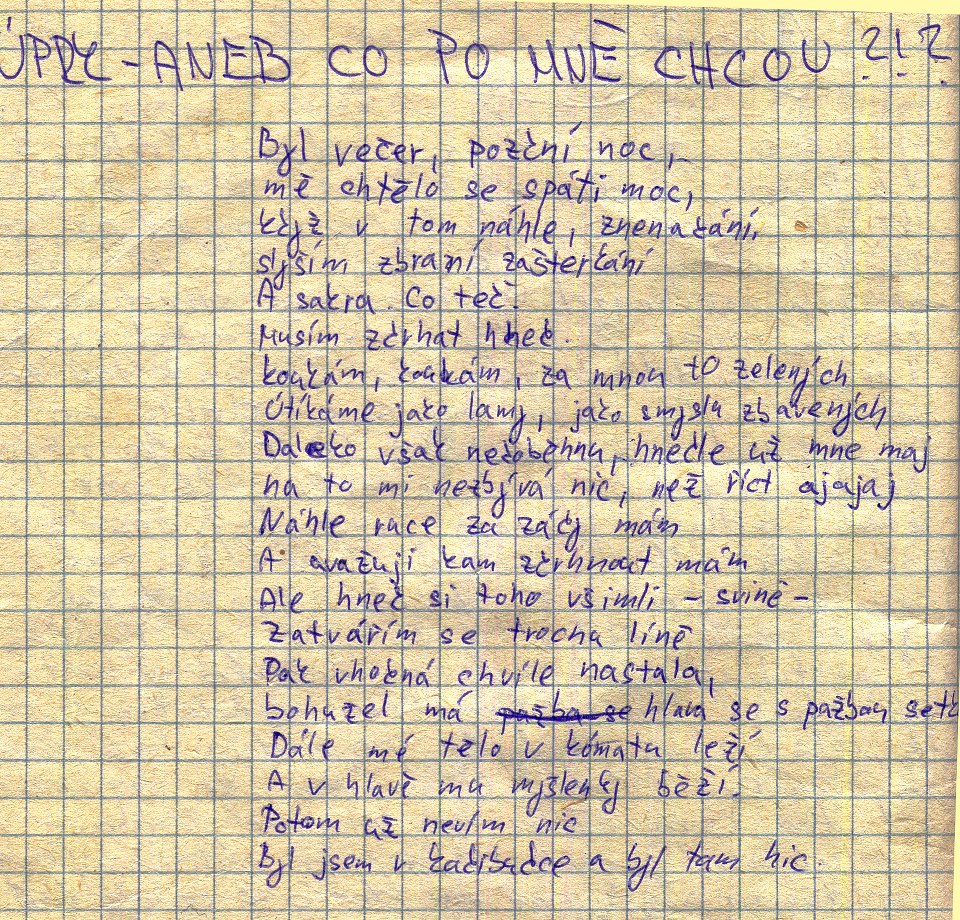 ÚPRK - ANEB CO PO MNĚ CHCOU ?!?
Byl večer, pozdní noc,
mě chtělo se spáti moc,
když v tom náhle, znenadání,
slyším zbraní zašterkání
A sakra. Co teď.
Musím zdrhat hned.
koukám, koukám, za mnou 10 zelených
Utíkáme jako lamy, jako smyslu zbavených
Daleko však nedoběhnu, hnedle už mne maj
na to mi nezbývá nic, než říct ajajaj
Náhle ruce za zády mám
A uvažuji kam zdrhnout mám
Ale hned si toho všimli - svině -
Zatvářím se trochu líně
Pak vhodná chvíle nastala,
bohuzel má pažba se hlava se s pažbou setk
Dále mé tělo v kómatu leží
A v hlavě mu myšlenky běží.
Potom už nevím nic
Byl jsem v kadibudce a byl tam hic.